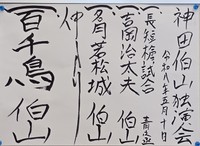 神田伯山独演会
令和八年五月十日
長短槍試合 青之丞
吉岡治太夫 伯山
名月若松城 伯山
仲入り
百千鳥 伯山